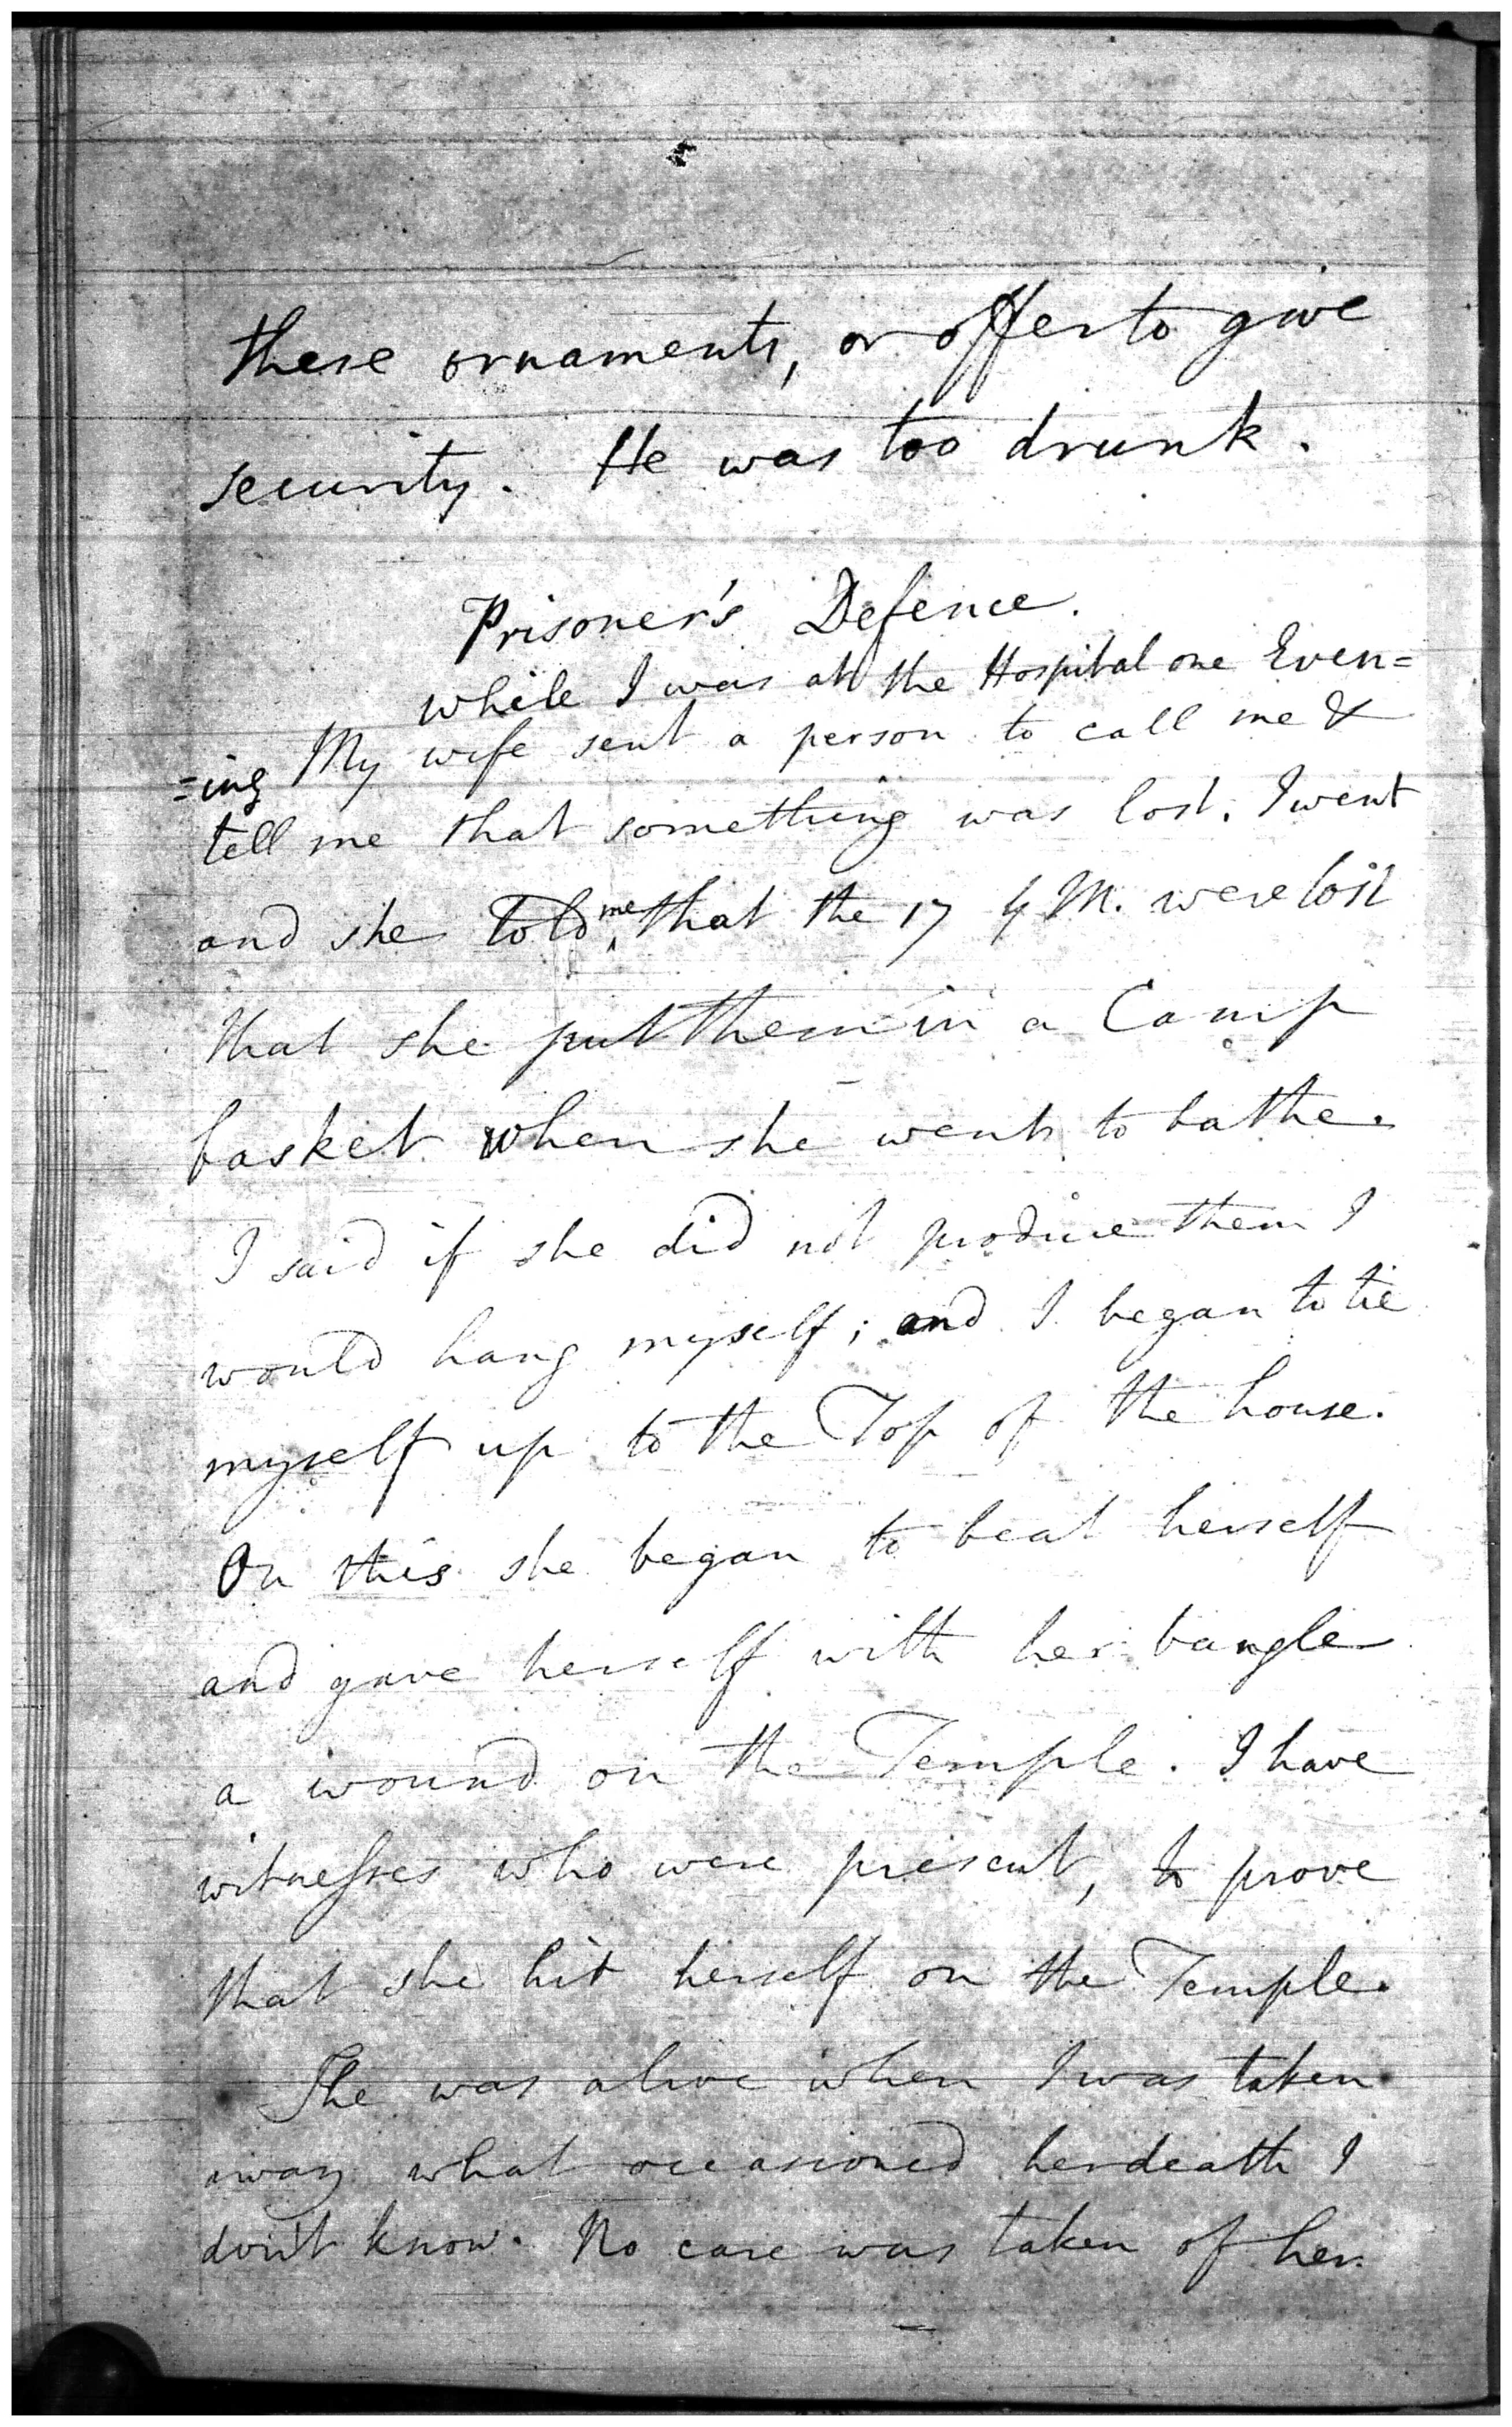 these ornaments, or offer to give
security. He was too drunk.
Prisoner's Defence.
while I was at the Hospital one Even=
=ing My wife sent a person to call me &
tell me that something was lost. I went
and she told me that the 17 G M. were lost
that she put them in a Camp
basket when she went to bathe.
I said if she did not produce them I
would hang myself; and I began to tie
myself up to the Top of the house.
On this she began to beat herself
and gave herself with her bangle
a wound on the Temple. I have
witnesses who were present, to prove
that she hit herself on the Temple.
She was alive when I was taken
away what occasioned her death I
don't know. No care was taken of her.